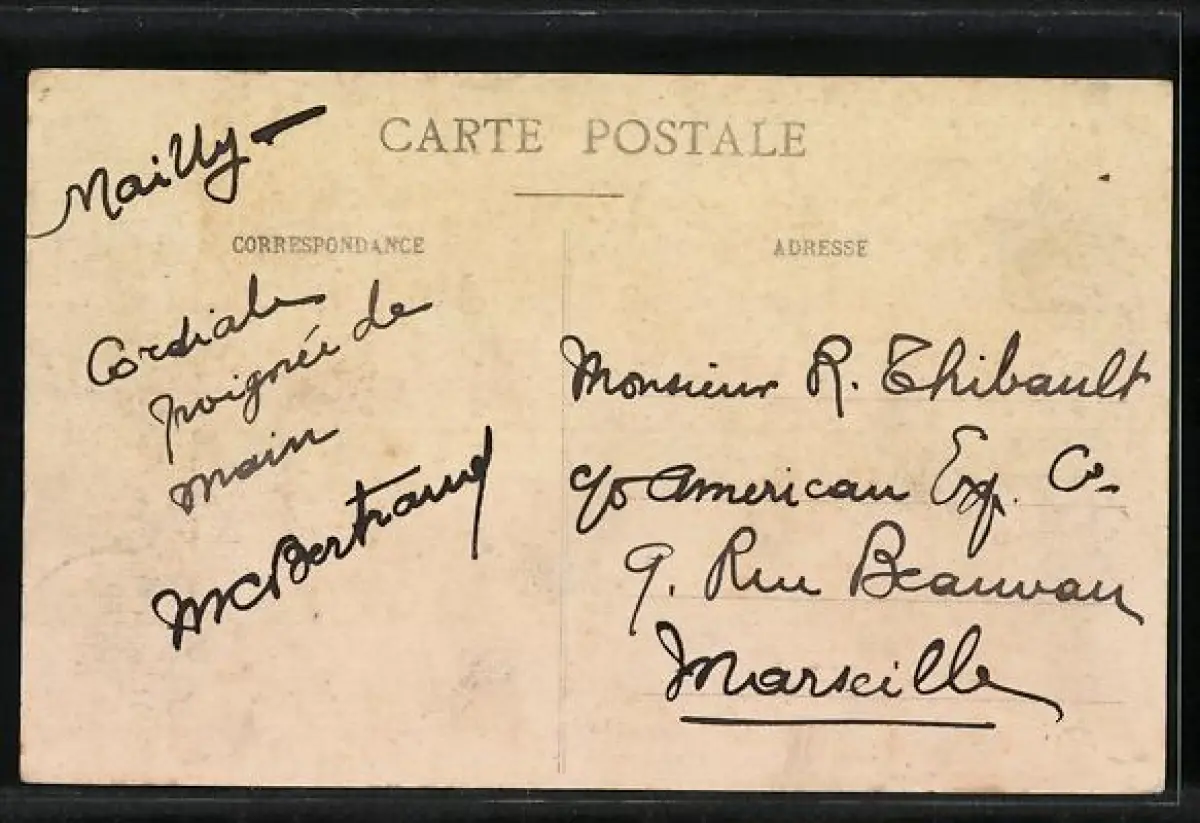 CARTE POSTALE
Mailly —
CORRESPONDANCE
Cordiale
poignée de
main
McBertrand
ADRESSE
Monsieur R. Thibault
c/o American Exp. Co
9. Rue Beauvau
Marseille